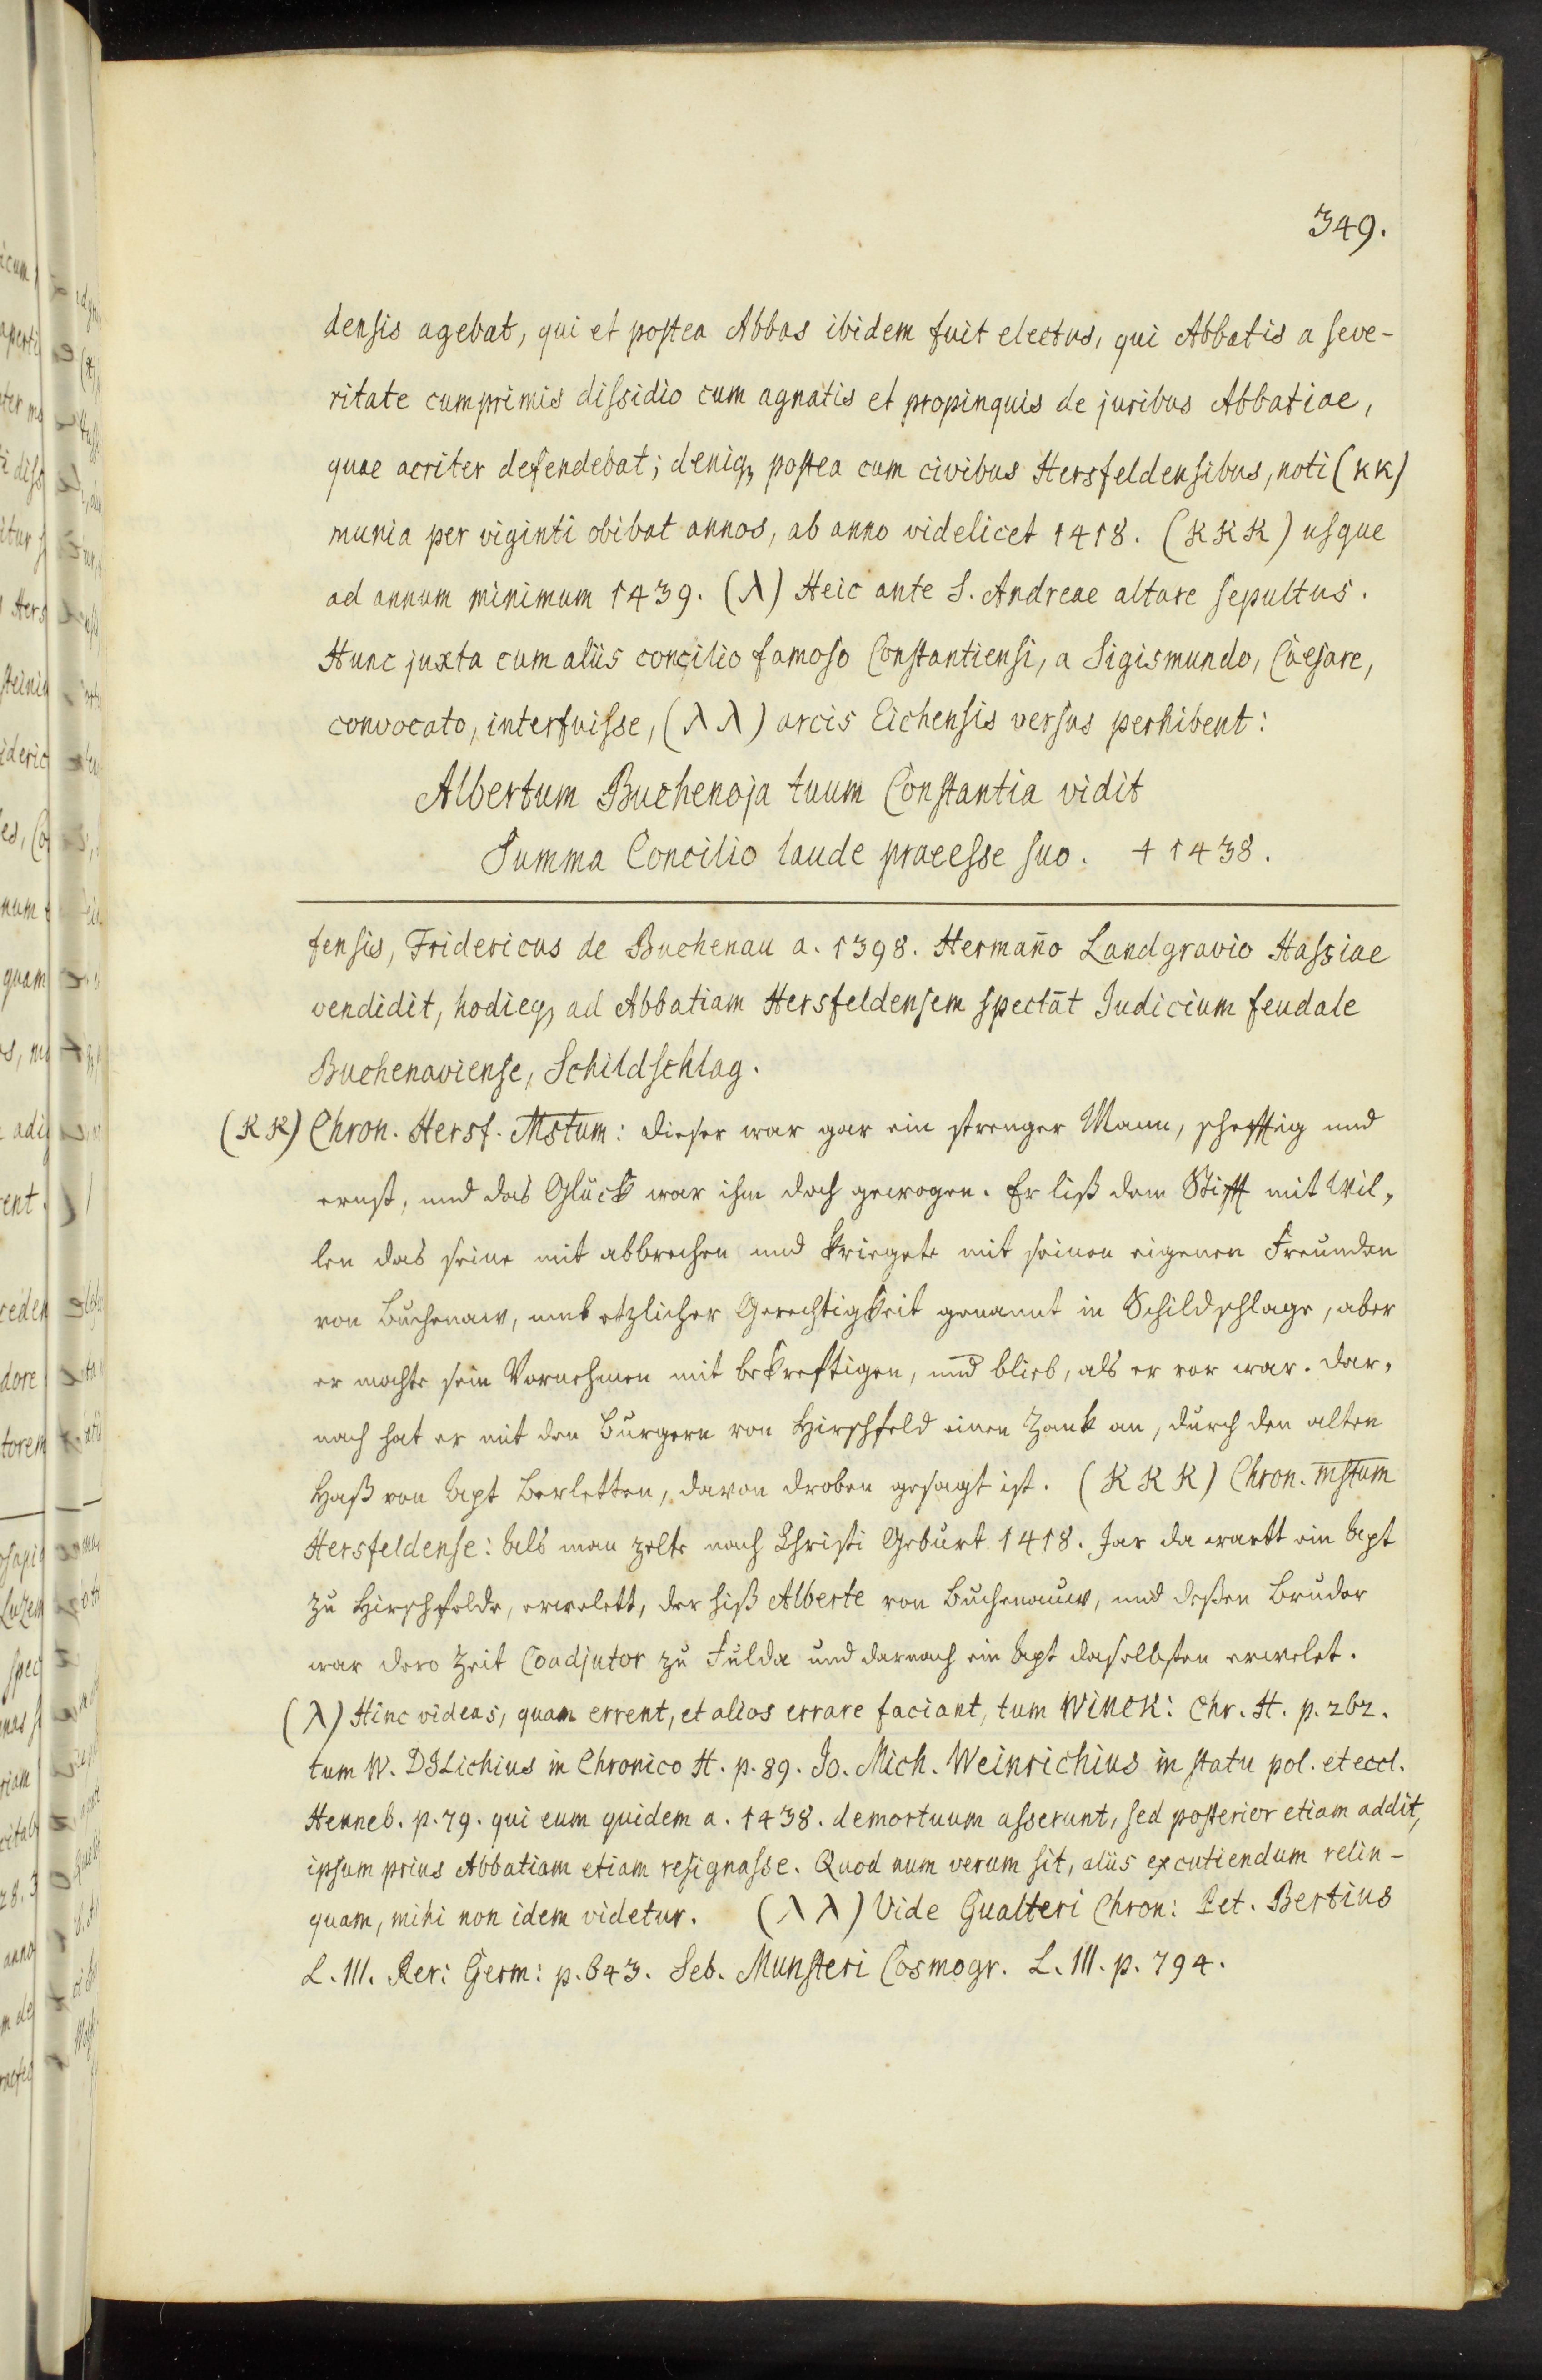 349.
densis agebat, qui et postea Abbas ibidem fuit electus, qui Abbatis a seve-
ritate cumprimis dissidio cum agnatis et propinquis de juribus Abbatiae,
quae acriter defendebat; deniq₃ postea cum civibus Hersfeldensibus, noti (κκ)
munia per viginti obibat annos, ab anno videlicet 1418. (κκκ) usque
ad annum minimum 1439. (λ) Heic ante S. Andreae altare sepultus.
Hunc juxta cum aliis concilio famoso Constantiensi, a Sigismundo, Caesare,
convocato, interfuisse, (λλ) arcis Eichensis versus perhibent:
Albertum Buchenoja tuum Constantia vidit
Summa Concilio laude praeesse suo. † 1438.
fensis, Fridericus de Buchenau a. 1398. Hermaño Landgravio Hassiae
vendidit, hodieq₃ ad Abbatiam Hersfeldensem spectāt Judicium feudale
Buchenaviense, Schildschlag.
(κκ) Chron. Hersf. Mstum: Dieser war gar ein strenger Mann, scheftig und
ernst, und das Glück war ihm doch gewogen. Er liß dem Stifft mit Wil-
len das seine nit abbrechen und kriegete mit seinen eigenen Freunden
von Buchenaw, umb etzlicher Gerechtigkeit genannt in Schildschlage, aber
er mochte sein Vornehmen nit bekreftigen, und blieb, als er vor war. Dar-
nach hat er mit den Burgern von Hirschfeld einen Zank an, durch den alten
Haß von Apt Berletten, davon droben gesagt ist. (κκκ) Chron. mstum
Hersfeldense: Als man zelte nach Christi Geburt 1418. Jar da wartt ein Apt
zu Hirschfelde, erwelett, der hiß Alberte von Buchenauw, und deßen Bruder
war dero Zeit Coadjutor zu Fulda und darnach ein Apt daselbsten erwelet.
(λ) Hinc videas, quam errent, et alios errare faciant, tum Winck: Chr. H. p. 262.
tum W. Dilichius in Chronico H. p. 89. Jo. Mich. Weinrichius in statu pol. et eccl.
Henneb. p. 79. qui eum quidem a. 1438. demortuum asserunt, sed posterior etiam addit,
ipsum prius Abbatiam etiam resignasse. Quod num verum sit, aliis excutiendum relin-
quam, mihi non idem videtur. (λλ) Vide Gualteri Chron: Pet. Bertius
L. III. Rer: Germ: p. 643. Seb. Munsteri Cosmogr. L. III. p. 794.